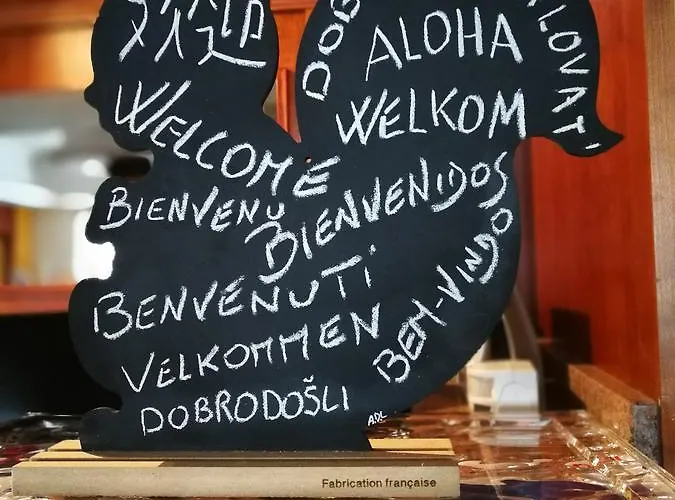 欢迎
ALOHA
WELKOM
WELCOME
BIENVENU
BIENVENIDOS
BENVENUTI
BEM-VINDO
VELKOMMEN
DOBRODOŠLI
ADL
Fabrication française